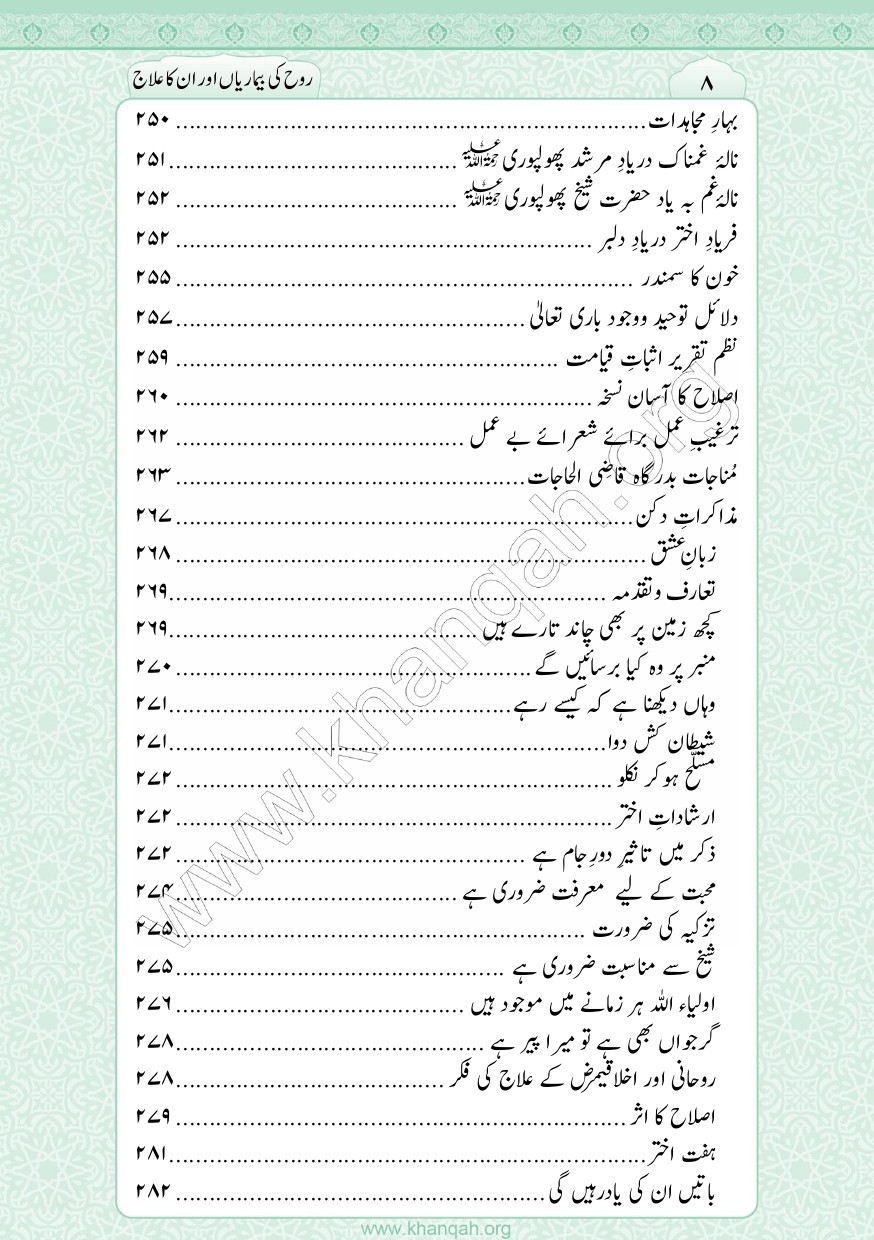 روح کی بیماریاں اور ان کا علاج
۸
بہارِ مجاہدات ........ ۲۵۰
نالۂ غمناک در یادِ مرشد پھولپوری رحمۃ اللہ علیہ ........ ۲۵۱
نالۂ غم بہ یاد حضرت شیخ پھولپوری رحمۃ اللہ علیہ ........ ۲۵۲
فریادِ اختر در یادِ دلبر ........ ۲۵۲
خون کا سمندر ........ ۲۵۵
دلائل توحید ووجود باری تعالیٰ ........ ۲۵۷
نظم تقریر اثباتِ قیامت ........ ۲۵۹
اصلاح کا آسان نسخہ ........ ۲۶۰
ترغیبِ عمل برائے شعرائے بے عمل ........ ۲۶۲
مُناجات بدرگاہ قاضِی الحاجات ........ ۲۶۳
مذاکراتِ دکن ........ ۲۶۷
زبانِ عشق ........ ۲۶۸
تعارف وتقدمہ ........ ۲۶۹
کچھ زمین پر بھی چاند تارے ہیں ........ ۲۶۹
منبر پر وہ کیا برسائیں گے ........ ۲۷۰
وہاں دیکھنا ہے کہ کیسے رہے ........ ۲۷۱
شیطان کش دوا ........ ۲۷۱
مسلّح ہو کر نکلو ........ ۲۷۲
ارشاداتِ اختر ........ ۲۷۲
ذکر میں تاثیرِ دورِ جام ہے ........ ۲۷۲
محبت کے لیے معرفت ضروری ہے ........ ۲۷۴
تزکیہ کی ضرورت ........ ۲۷۵
شیخ سے مناسبت ضروری ہے ........ ۲۷۵
اولیاء اللہ ہر زمانے میں موجود ہیں ........ ۲۷۶
گرجواں بھی ہے تو میرا پیر ہے ........ ۲۷۸
روحانی اور اخلاقیمرض کے علاج کی فکر ........ ۲۷۸
اصلاح کا اثر ........ ۲۷۹
ہفت اختر ........ ۲۸۱
باتیں ان کی یاد رہیں گی ........ ۲۸۲
www.khanqah.org
www.khanqah.org